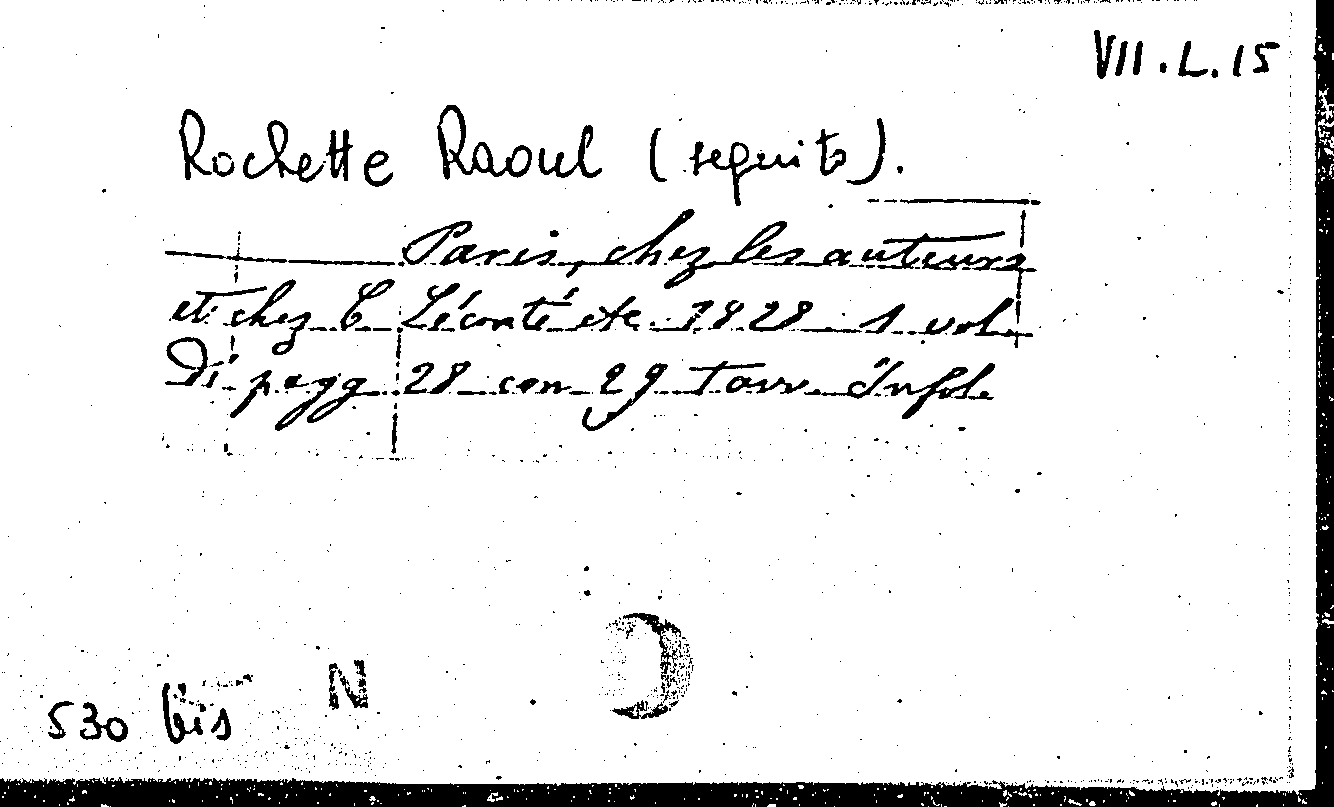 VII.L.15
Rochette Raoul (seguito).
Paris, chez les auteurs
et chez C Léconté etc. 1828 1 vol.
Di pagg 28 con 29 Tavv. Infol.
N
530 bis